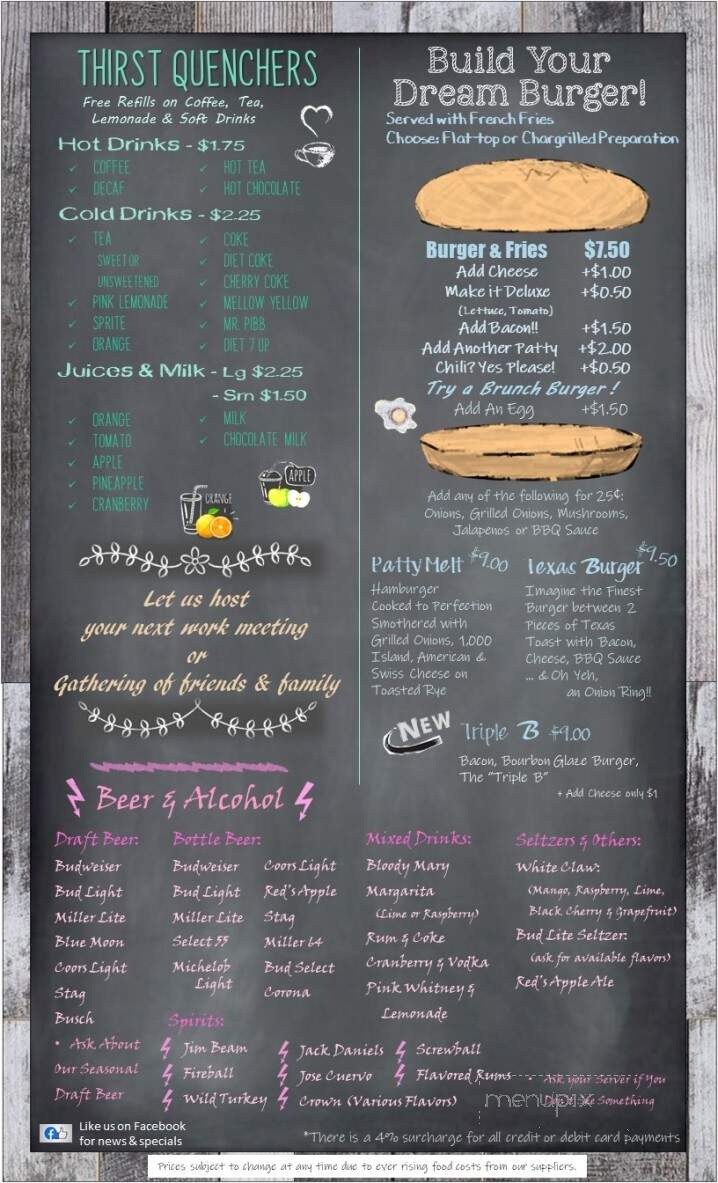 THIRST QUENCHERS
Free Refills on Coffee, Tea,
Lemonade & Soft Drinks
Hot Drinks - $1.75
✓ COFFEE ✓ HOT TEA
✓ DECAF ✓ HOT CHOCOLATE
Cold Drinks - $2.25
✓ TEA ✓ COKE
SWEET OR ✓ DIET COKE
UNSWEETENED ✓ CHERRY COKE
✓ PINK LEMONADE ✓ MELLOW YELLOW
✓ SPRITE ✓ MR. PIBB
✓ ORANGE ✓ DIET 7 UP
Juices & Milk - Lg $2.25
- Sm $1.50
✓ ORANGE ✓ MILK
✓ TOMATO ✓ CHOCOLATE MILK
✓ APPLE
✓ PINEAPPLE
✓ CRANBERRY
APPLE
ORANGE
Let us host
your next work meeting
or
Gathering of friends & family
Build Your
Dream Burger!
Served with French Fries
Choose: Flat-top or Chargrilled Preparation
Burger & Fries $7.50
Add Cheese +$1.00
Make it Deluxe +$0.50
(Lettuce, Tomato)
Add Bacon!! +$1.50
Add Another Patty +$2.00
Chili? Yes Please! +$0.50
Try a Brunch Burger!
Add An Egg +$1.50
Add any of the following for 25¢:
Onions, Grilled Onions, Mushrooms,
Jalapenos or BBQ Sauce
Patty Melt $9.00
Hamburger
Cooked to Perfection
Smothered with
Grilled Onions, 1,000
Island, American &
Swiss Cheese on
Toasted Rye
Texas Burger $9.50
Imagine the Finest
Burger between 2
Pieces of Texas
Toast with Bacon,
Cheese, BBQ Sauce
... & Oh Yeh,
an Onion Ring!!
NEW Triple B $9.00
Bacon, Bourbon Glaze Burger,
The "Triple B"
+ Add Cheese only $1
Beer & Alcohol
Draft Beer:
Budweiser
Bud Light
Miller Lite
Blue Moon
Coors Light
Stag
Busch
• Ask About
Our Seasonal
Draft Beer
Bottle Beer:
Budweiser Coors Light
Bud Light Red's Apple
Miller Lite Stag
Select 55 Miller 64
Michelob Bud Select
Light Corona
Mixed Drinks:
Bloody Mary
Margarita
(Lime or Raspberry)
Rum & Coke
Cranberry & Vodka
Pink Whitney &
Lemonade
Seltzers & Others:
White Claw:
(Mango, Raspberry, Lime,
Black Cherry & Grapefruit)
Bud Lite Seltzer:
(ask for available flavors)
Red's Apple Ale
Spirits:
Jim Beam Jack Daniels Screwball
Fireball Jose Cuervo Flavored Rums
Wild Turkey Crown (Various Flavors)
• Ask your Server if You
Something
menupix
Like us on Facebook
for news & specials
*There is a 4% surcharge for all credit or debit card payments
Prices subject to change at any time due to ever rising food costs from our suppliers.